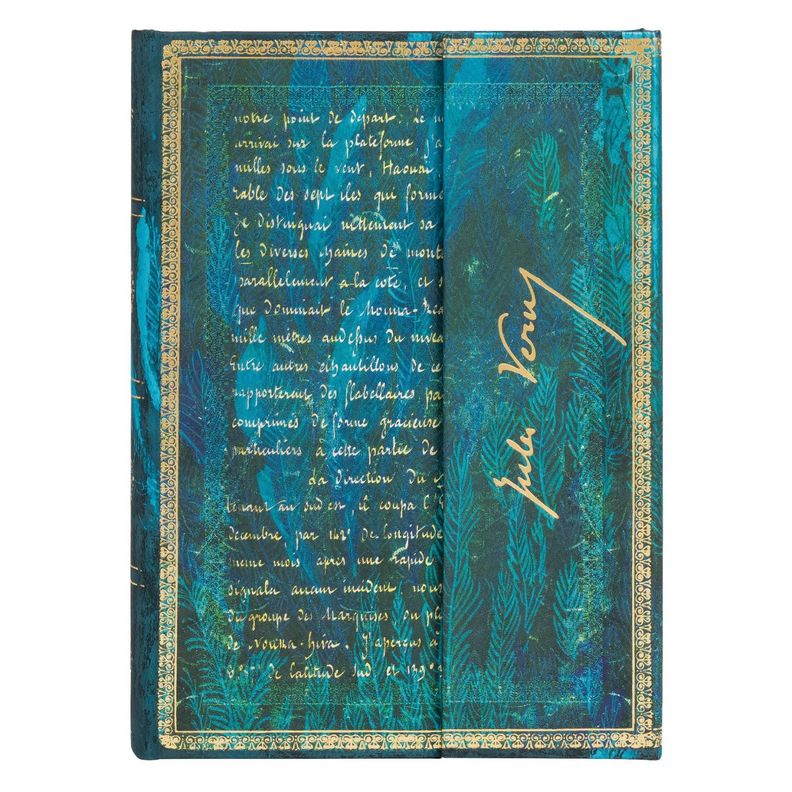 notre point de depart. Le
arrivai sur la plateforme j'a
milles sous le vent, Haouai
rable des sept iles qui form
Je distinguai nettement sa
les diverses chaines de mont
parallelement a la cote, et s
que dominait le Mouna-Rea
mille mètres audessus du nivea
Entre autres échantillons de ce
rapporterent des flabellaires pa
comprimés de forme gracieuse
particuliers à cette partie de
La direction du
tenant au sud est, il coupa l'
decembre, par 142° de longitude
meme mois après une rapide
signala aucun incident, nous
du groupe des Marquises, ou pl
de Nouka-hiva. J'aperçus a
de latitude sud et 139°
Jules Verne